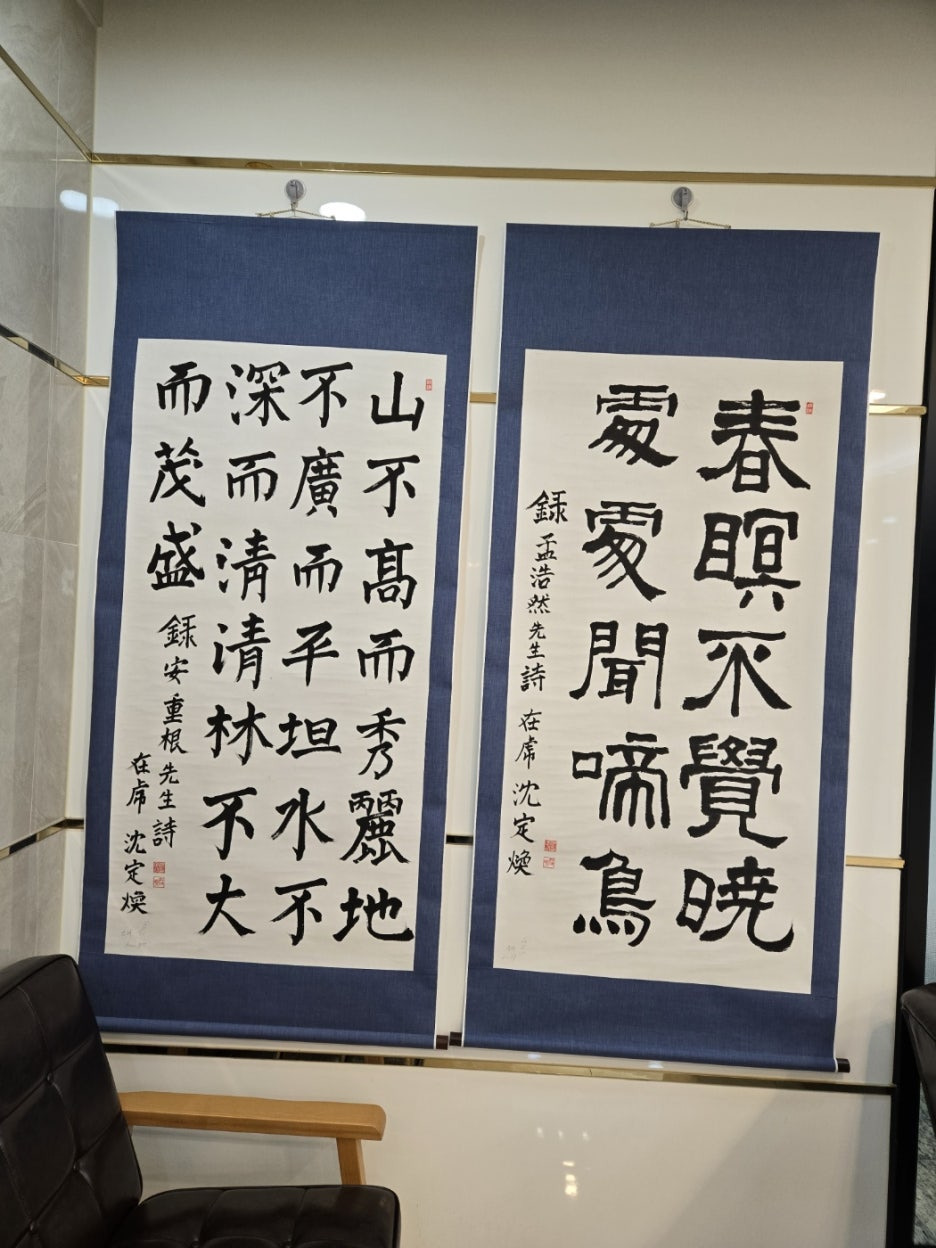 春瞑不覺暁
處處聞啼鳥
録孟浩然先生詩
在 沈定煥
山不髙而秀麗地
不廣而平坦水不
深而清清林不大
而茂盛 録安重根先生詩
在 沈定煥